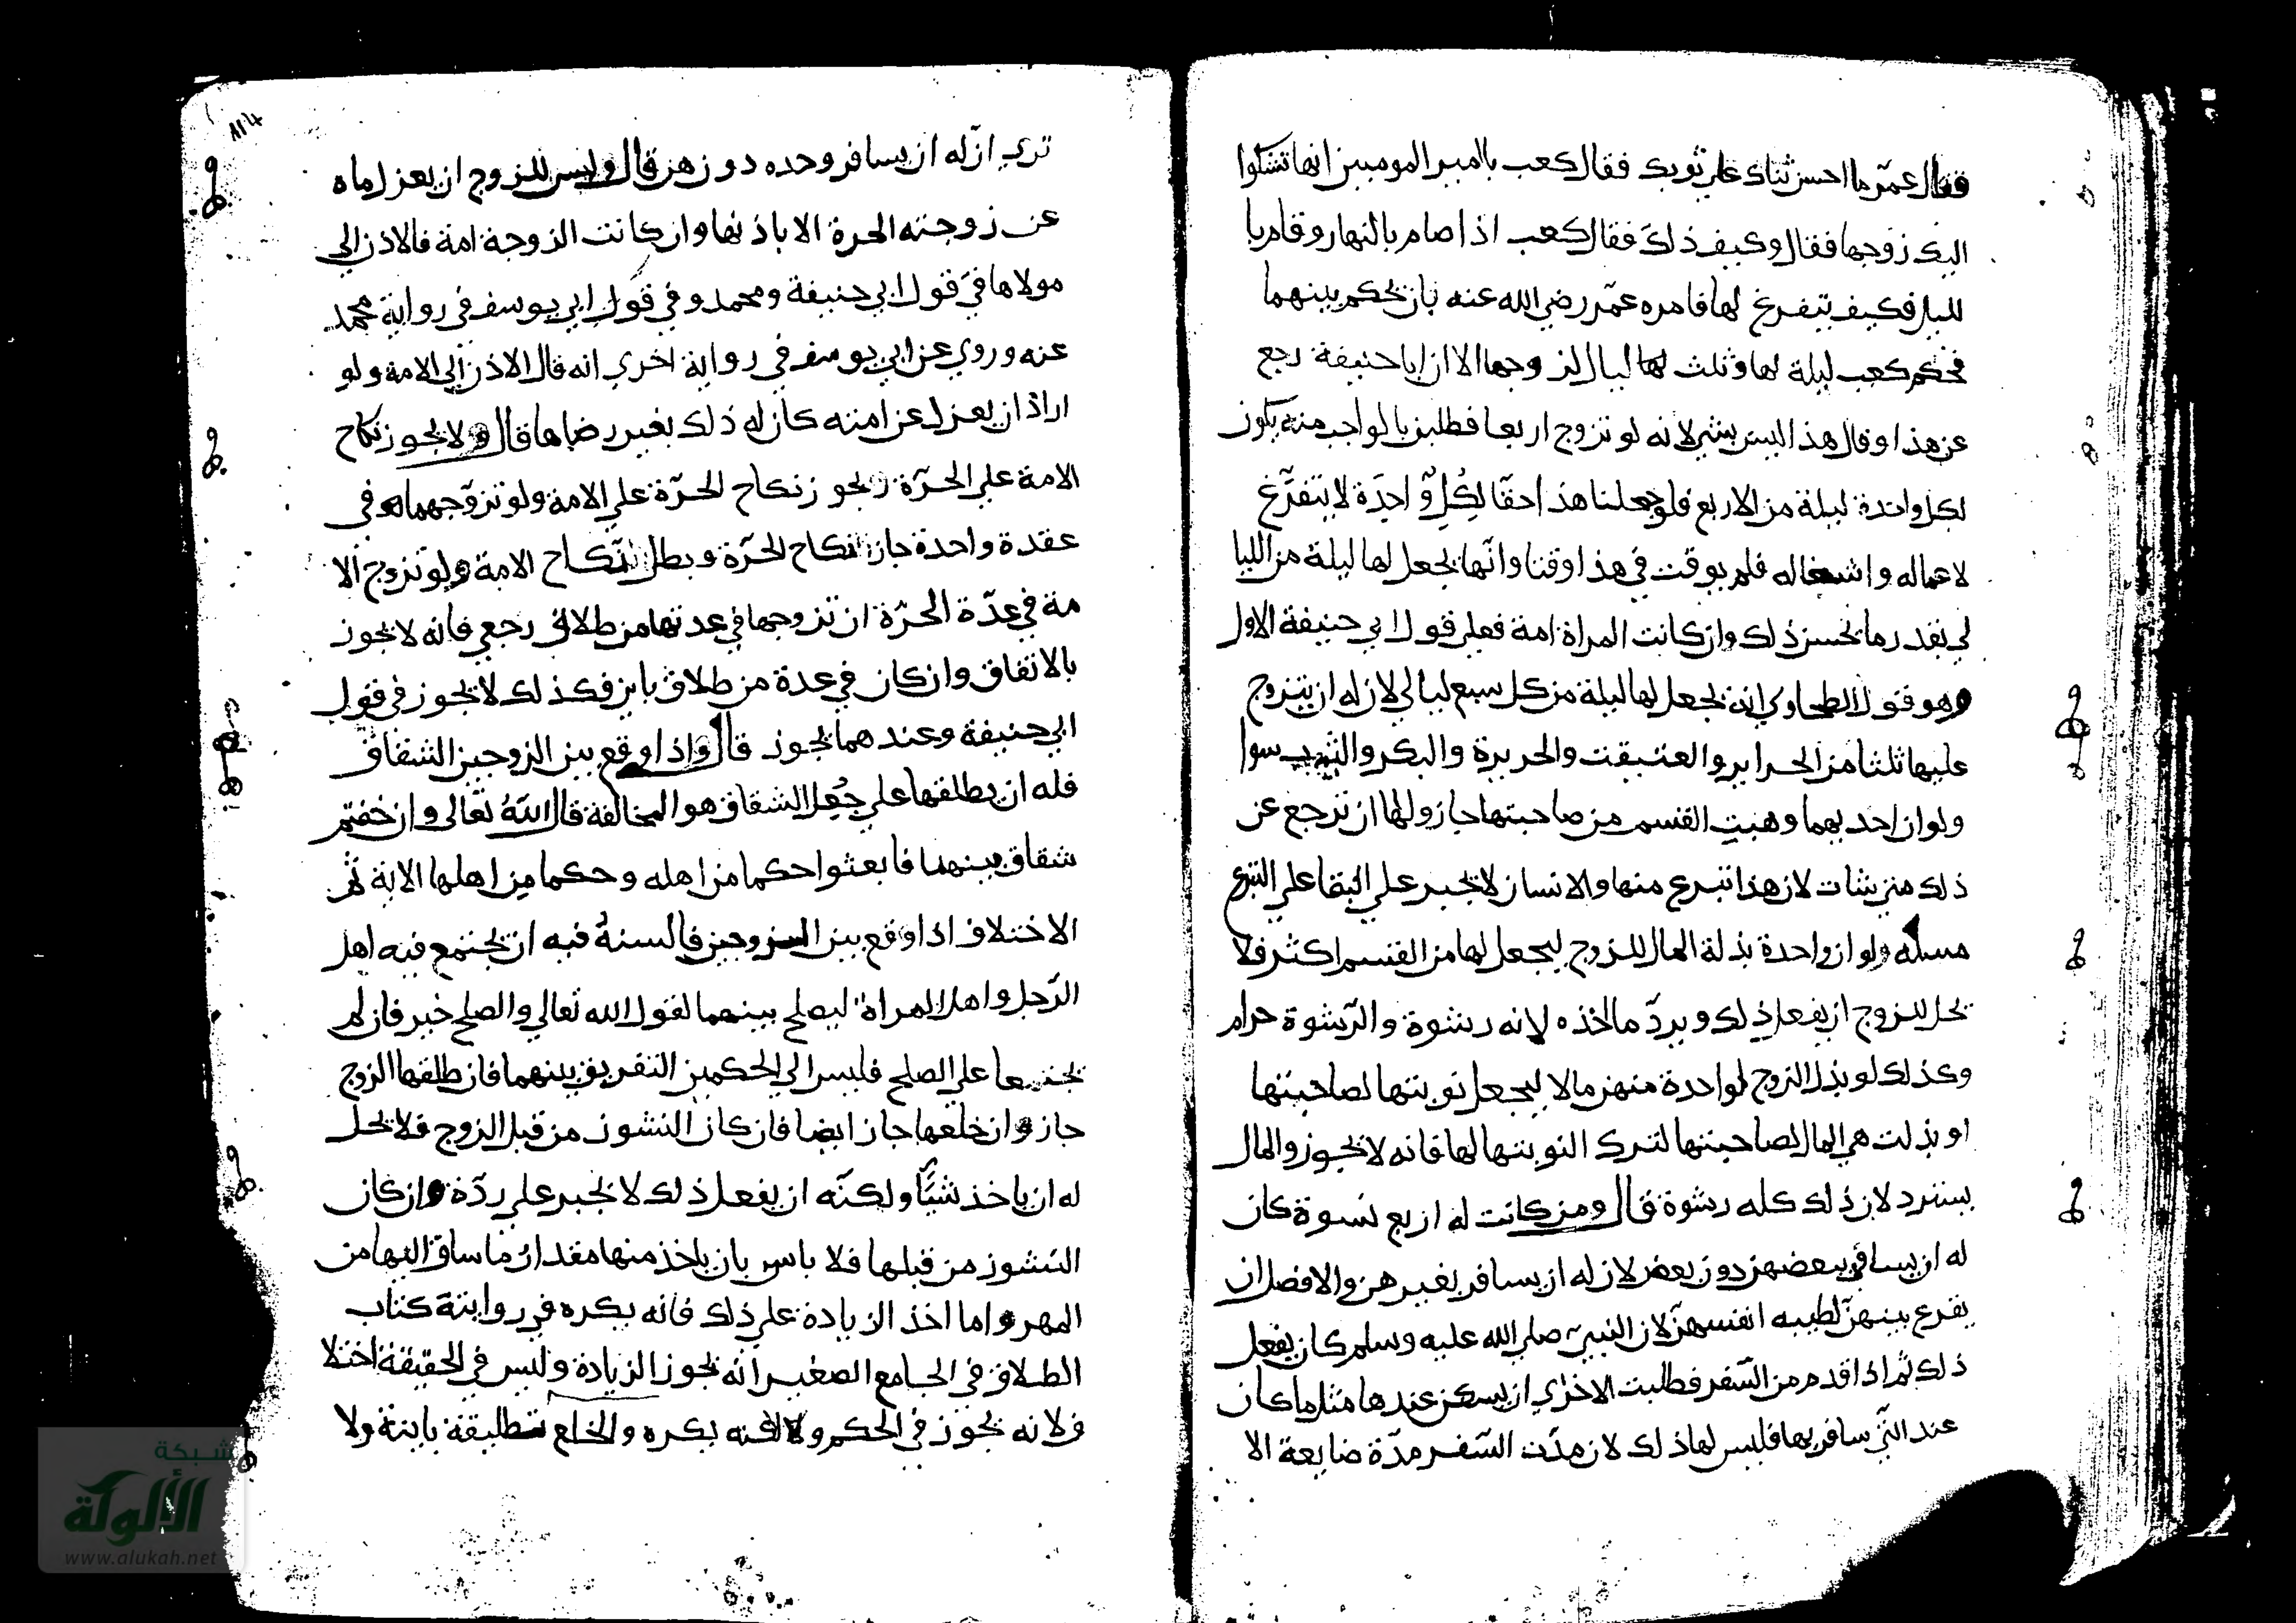 فقال عمر ما احسن ثناك علي ثوبك فقال كعب يا امير المومنين انها تشكوا
اليك زوجها فقال وكيف ذلك فقال كعب اذا صام بالنهار وقام با
لليل فكيف يتفرغ لها فامره عمر رضي الله عنه بان يحكم بينهما
فحكم كعب ليلة لها وثلث لها ليال لزوجها الا ان ابا حنيفة رجع
عن هذا وقال هذا ليس بشي لانه لو تزوج اربعا فطلبن بالواجب منه يكون
لكل واحدة ليلة من الاربع فلو جعلنا هذا حقا لكل واحدة لا يتفرغ
لاعماله واشغاله فلم يوقت في هذا وقتا وانها يجعل لها ليلة من الليا
لي بقدر ما يحسن ذلك وان كانت المراة امة فعلي قول ابي حنيفة الاول
وهو قول الطحاوي انه يجعل لها ليلة من كل سبع ليالي لان له ان يتزوج
عليها ثلثا من الحراير والعتيقت والحريرة والبكر والثيب سوا
ولو ان احديهما وهبت القسم من صاحبتها جاز ولها ان ترجع عن
ذلك متي شات لان هذا تبرع منها والانسان لا يجبر علي البقا علي التبرع
مسله ولو ان واحدة بذلة المال للزوج ليجعل لها من القسم اكثر فلا
يحل للزوج ان يفعل ذلك ويرد ما اخذه لانه رشوة والرشوة حرام
وكذلك لو بذل الزوج لواحدة منهن مالا ليجعل نوبتها لصاحبتها
او بذلت هي المال لصاحبتها لترك النوبتها لها فانه لا يجوز والمال
يسترد لان ذلك كله رشوة قال ومن كانت له اربع نسوة كان
له ان يسافر ببعضهن دون بعض لان له ان يسافر بغيرهن والافضل ان
يقرع بينهن لطيبه انفسهن لان النبي صلي الله عليه وسلم كان يفعل
ذلك ثم اذا قدم من السفر فطلبت الاخري ان يسكن عندها مثل ما كان
عند التي سافر بها فليس لها ذلك لان مدت السفر مدة ضايعة الا
114
تري ان له ان يسافر وحده دونهن قال وليس للزوج ان يعزل ماه
عن زوجته الحرة الا باذنها وان كانت الزوجة امة فالاذن الي
مولاها في قول ابي حنيفة ومحمد وفي قول ابي يوسف في رواية محمد
عنه وروي عن ابي يوسف في رواية اخري انه قال الاذن الي الامة ولو
اراد ان يعزل عن امته كان له ذلك بغير رضاها قال ولا يجوز نكاح
الامة علي الحرة ويجوز نكاح الحرة علي الامة ولو تزوجهما في
عقدة واحدة جاز نكاح الحرة وبطل نكاح الامة ولو تزوج الا
مة في عدة الحرة ان تزوجها في عدتها من طلاق رجعي فانه لا يجوز
بالاتفاق وان كان في عدة من طلاق باين فكذلك لا يجوز في قول
ابي حنيفة وعندهما يجوز قال واذا وقع بين الزوجين الشقاق
فله ان يطلقها علي جعل الشقاق هو المخالفة قال الله تعالي وان خفتم
شقاق بينهما فابعثوا حكما من اهله وحكما من اهلها الاية ثم
الاختلاف اذا وقع بين الزوجين فالسنة فيه ان يجتمع فيه اهل
الرجل واهل المراة ليصلح بينهما لقول الله تعالي والصلح خير فان لم
يجتمعا علي الصلح فليس الي الحكمين التفريق بينهما فان طلقها الزوج
جاز وان خلعها جاز ايضا فان كان النشوز من قبل الزوج فلا يحل
له ان ياخذ شيا ولكنه ان يفعل ذلك لا يجبر علي ردة وان كان
النشوز من قبلها فلا باس بان ياخذ منها مقدار ما ساق اليها من
المهر واما اخذ الزيادة علي ذلك فانه يكره في روايته كتاب
الطلاق في الجامع الصغير انه يجوز الزيادة وليس في الحقيقة اختلا
ف لانه يجوز في الحكم ولاكنه يكره والخلع تطليقة باينة ولا
شبكة
الألوكة
www.alukah.net